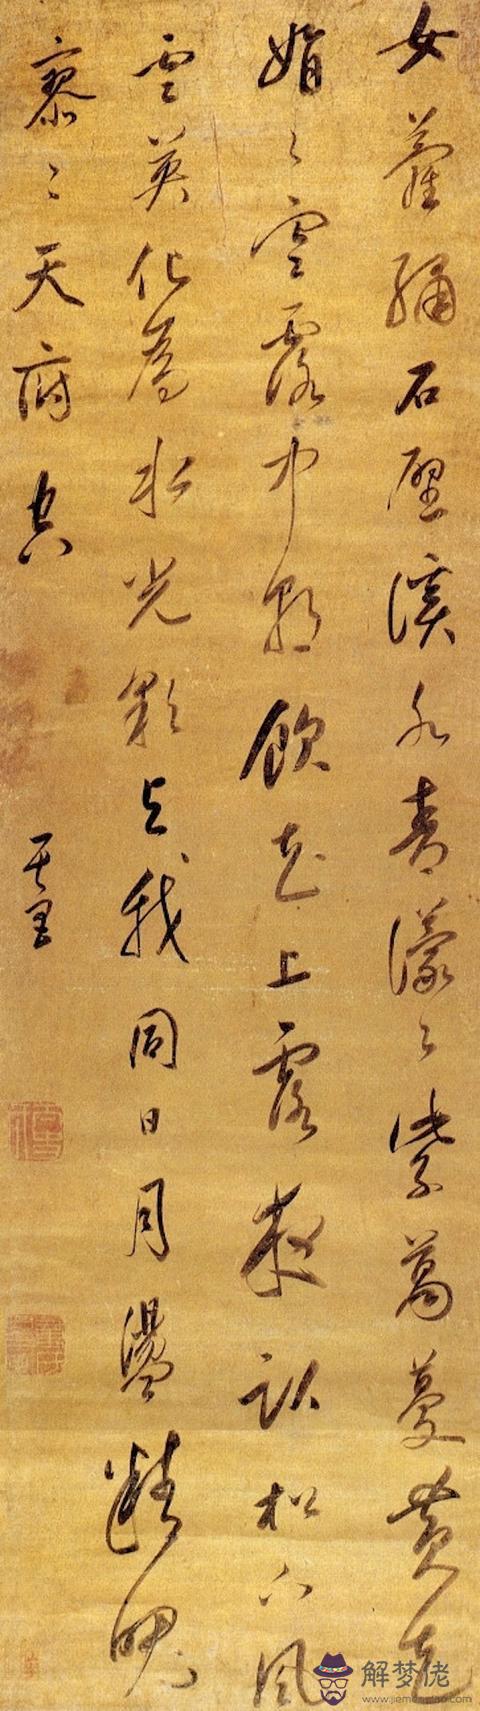 女蘿繡石壁溪水青濛〻紫葛蔓黃花
娟〻寒露中朝飲花上露夜臥松下風
雲英化為水光彩与我同日月盪精魄
寥〻天府空
其昌
解梦佬
www.jiemenglao.com